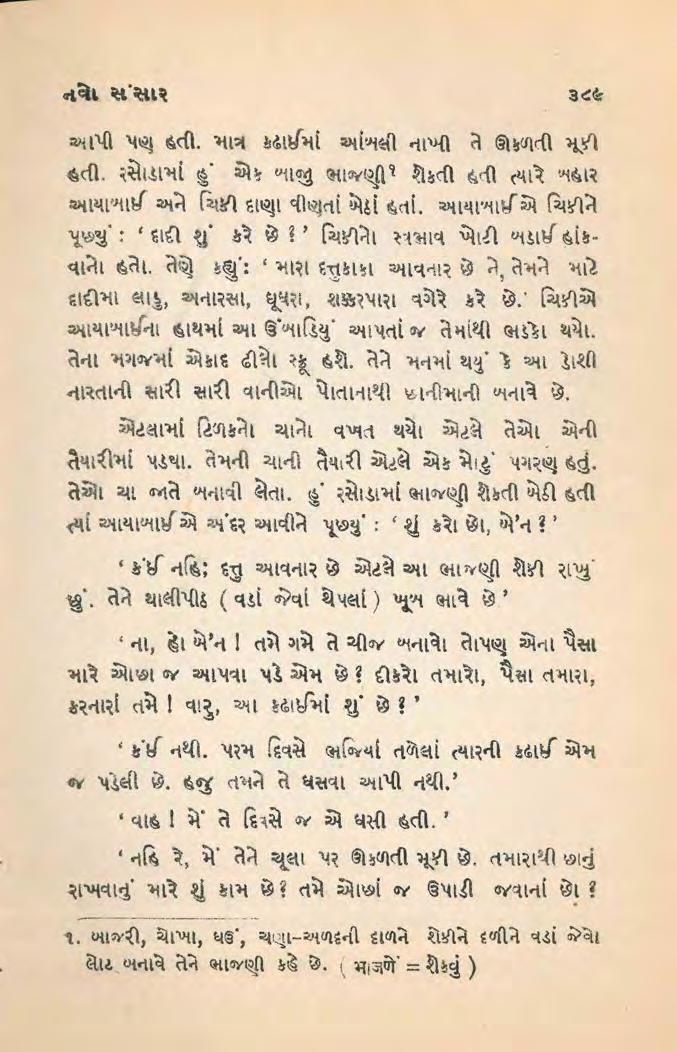 નવો સંસાર ૩૮૯
આપી પણ હતી. માત્ર કઢાઈમાં આંબલી નાખી તે ઊકળતી મૂકી
હતી. રસોડામાં હું એક બાજુ ભાજણી૧ શેકતી હતી ત્યારે બહાર
આયાબાઈ અને ચિકી દાણા વીણતાં બેઠાં હતાં. આયાબાઈએ ચિકીને
પૂછ્યું : ‘ દાદી શું કરે છે ? ’ ચિકીનો સ્વભાવ ખોટી બડાઈ હાંક-
વાનો હતો. તેણે કહ્યું: ‘ મારા દત્તુકાકા આવનાર છે ને, તેમને માટે
દાદીમા લાડુ, અનારસા, ઘૂઘરા, શક્કરપારા વગેરે કરે છે.’ ચિકીએ
આયાબાઈના હાથમાં આ ઉંબાડિયું આપતાં જ તેમાંથી ભડકો થયો.
તેના મગજમાં એકાદ ઢીલો સ્ક્રૂ હશે. તેને મનમાં થયું કે આ ડોશી
નાસ્તાની સારી સારી વાનીઓ પોતાનાથી છાનીમાની બનાવે છે.
એટલામાં ટિળકનો ચાનો વખત થયો એટલે તેઓ એની
તૈયારીમાં પડ્યા. તેમની ચાની તૈયારી એટલે એક મોટું પગરણ હતું.
તેઓ ચા જાતે બનાવી લેતા. હું રસોડામાં ભાજણી શેકતી બેઠી હતી
ત્યાં આયાબાઈએ અંદર આવીને પૂછ્યું : ‘ શું કરો છો, બે’ન ? ’
‘ કંઈ નહિ; દત્તુ આવનાર છે એટલે આ ભાજણી શેકી રાખું
છું. તેને થાલીપીઠ ( વડાં જેવાં થેપલાં ) ખૂબ ભાવે છે ’
‘ ના, હો બે’ન ! તમે ગમે તે ચીજ બનાવો તોપણ એના પૈસા
મારે ઓછા જ આપવા પડે એમ છે ? દીકરો તમારો, પૈસા તમારા,
કરનારાં તમે ! વારુ, આ કઢાઈમાં શું છે ? ’
‘ કંઈ નથી. પરમ દિવસે ભજિયાં તળેલાં ત્યારની કઢાઈ એમ
જ પડેલી છે. હજુ તમને તે ઘસવા આપી નથી.’
‘ વાહ ! મેં તે દિવસે જ એ ઘસી હતી. ’
‘ નહિ રે, મેં તેને ચૂલા પર ઊકળતી મૂકી છે. તમારાથી છાનું
રાખવાનું મારે શું કામ છે? તમે ઓછાં જ ઉપાડી જવાનાં છો ?
૧. બાજરી, ચોખા, ઘઉં, ચણા-અળદની દાળને શેકીને દળીને વડાં જેવો
લોટ બનાવે તેને ભાજણી કહે છે. ( भाजणें = શેકવું )